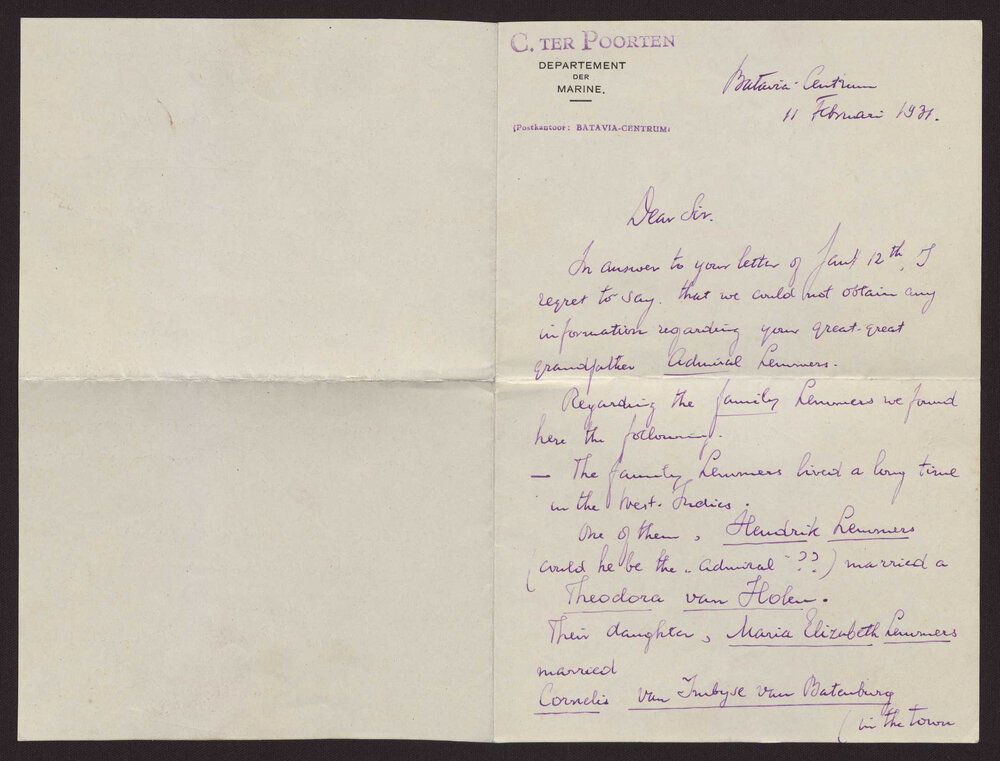 C. TER POORTEN
DEPARTEMENT
DER
MARINE.
(Postkantoor: BATAVIA-CENTRUM)
Batavia-Centrum
11 Februari 1931.
Dear Sir.
In answer to your letter of 12th, I
regret to say, that we could not obtain any
information regarding your great-great
grandfather Admiral Lemmers.
Regarding the family Lemmers we found
here the following.
— The family Lemmers lived a long time
in the West-Indies.
One of them, Hendrik Lemmers
(could he be the „Admiral" ??) married a
Theodora van Holen.
Their daughter, Maria Elizabeth Lemmers
married
Cornelis van Imbyse van Batenburg
(in the town